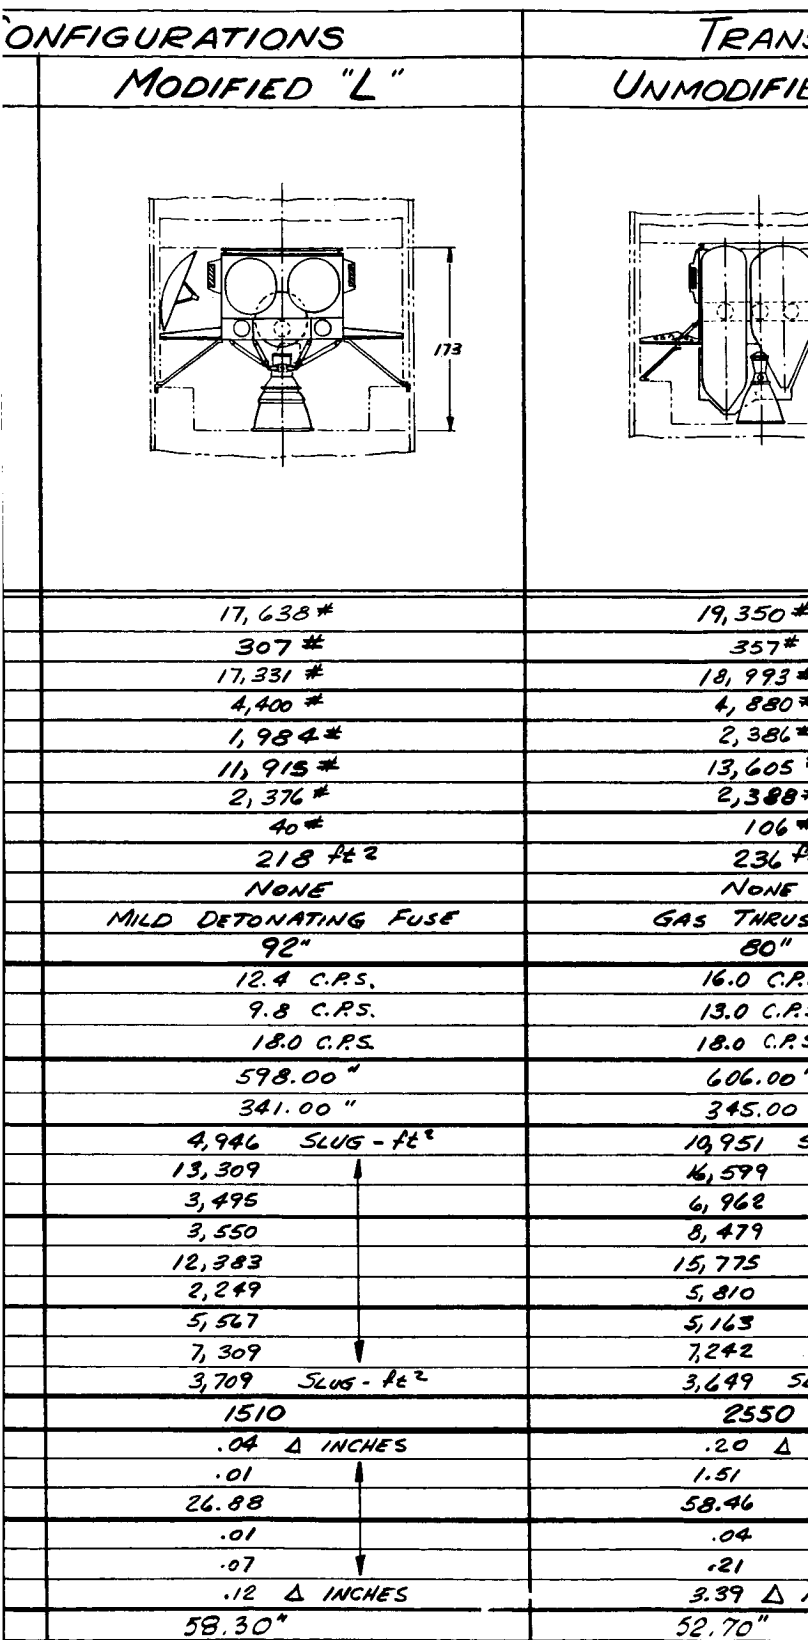 CONFIGURATIONS TRANS
MODIFIED "L" UNMODIFIE
173
17,638 # 19,350 #
307 # 357 #
17,331 # 18,993 #
4,400 # 4,880 #
1,984 # 2,386 #
11,915 # 13,605
2,376 # 2,388 #
40 # 106 #
218 ft² 236 f
NONE NONE
MILD DETONATING FUSE GAS THRUS
92" 80"
12.4 C.P.S. 16.0 C.P.
9.8 C.P.S. 13.0 C.P.S
18.0 C.P.S. 18.0 C.P.S
598.00" 606.00"
341.00" 345.00
4,946 SLUG-ft² 10,951 S
13,309 16,599
3,495 6,962
3,550 8,479
12,383 15,775
2,249 5,810
5,567 5,163
7,309 7,242
3,709 SLUG-ft² 3,649 SL
1510 2550
.04 Δ INCHES .20 Δ
.01 1.51
26.88 58.46
.01 .04
.07 .21
.12 Δ INCHES 3.39 Δ I
58.30" 52.70"